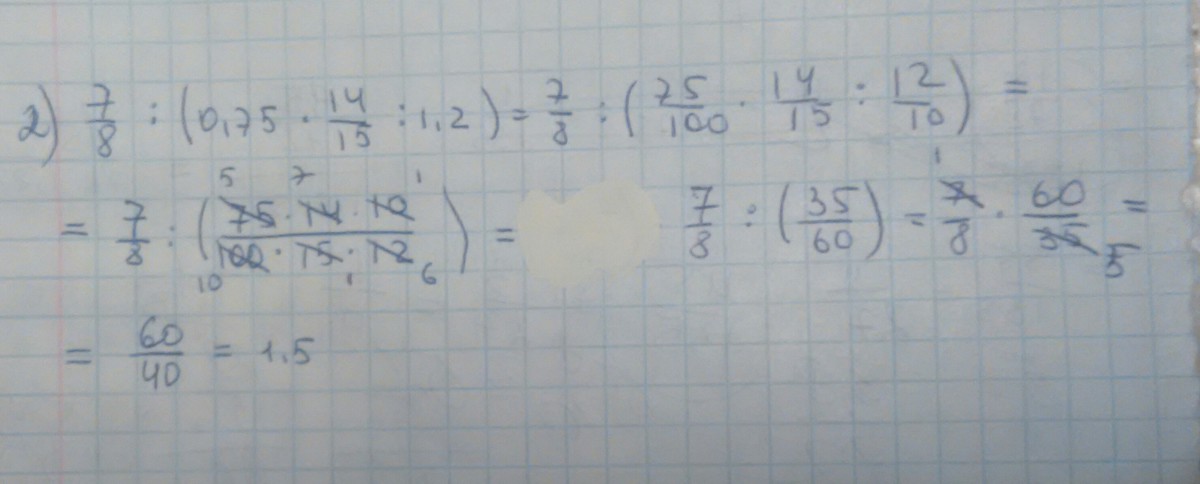 2) 7/8 : (0,75 · 14/15 : 1,2) = 7/8 : (75/100 · 14/15 : 12/10) =
= 7/8 : (75 5 · 14 7 · 10 1 / 100 10 · 15 1 · 12 6) = 7/8 : (35/60) = 7 1/8 · 60/35 5 =
= 60/40 = 1,5